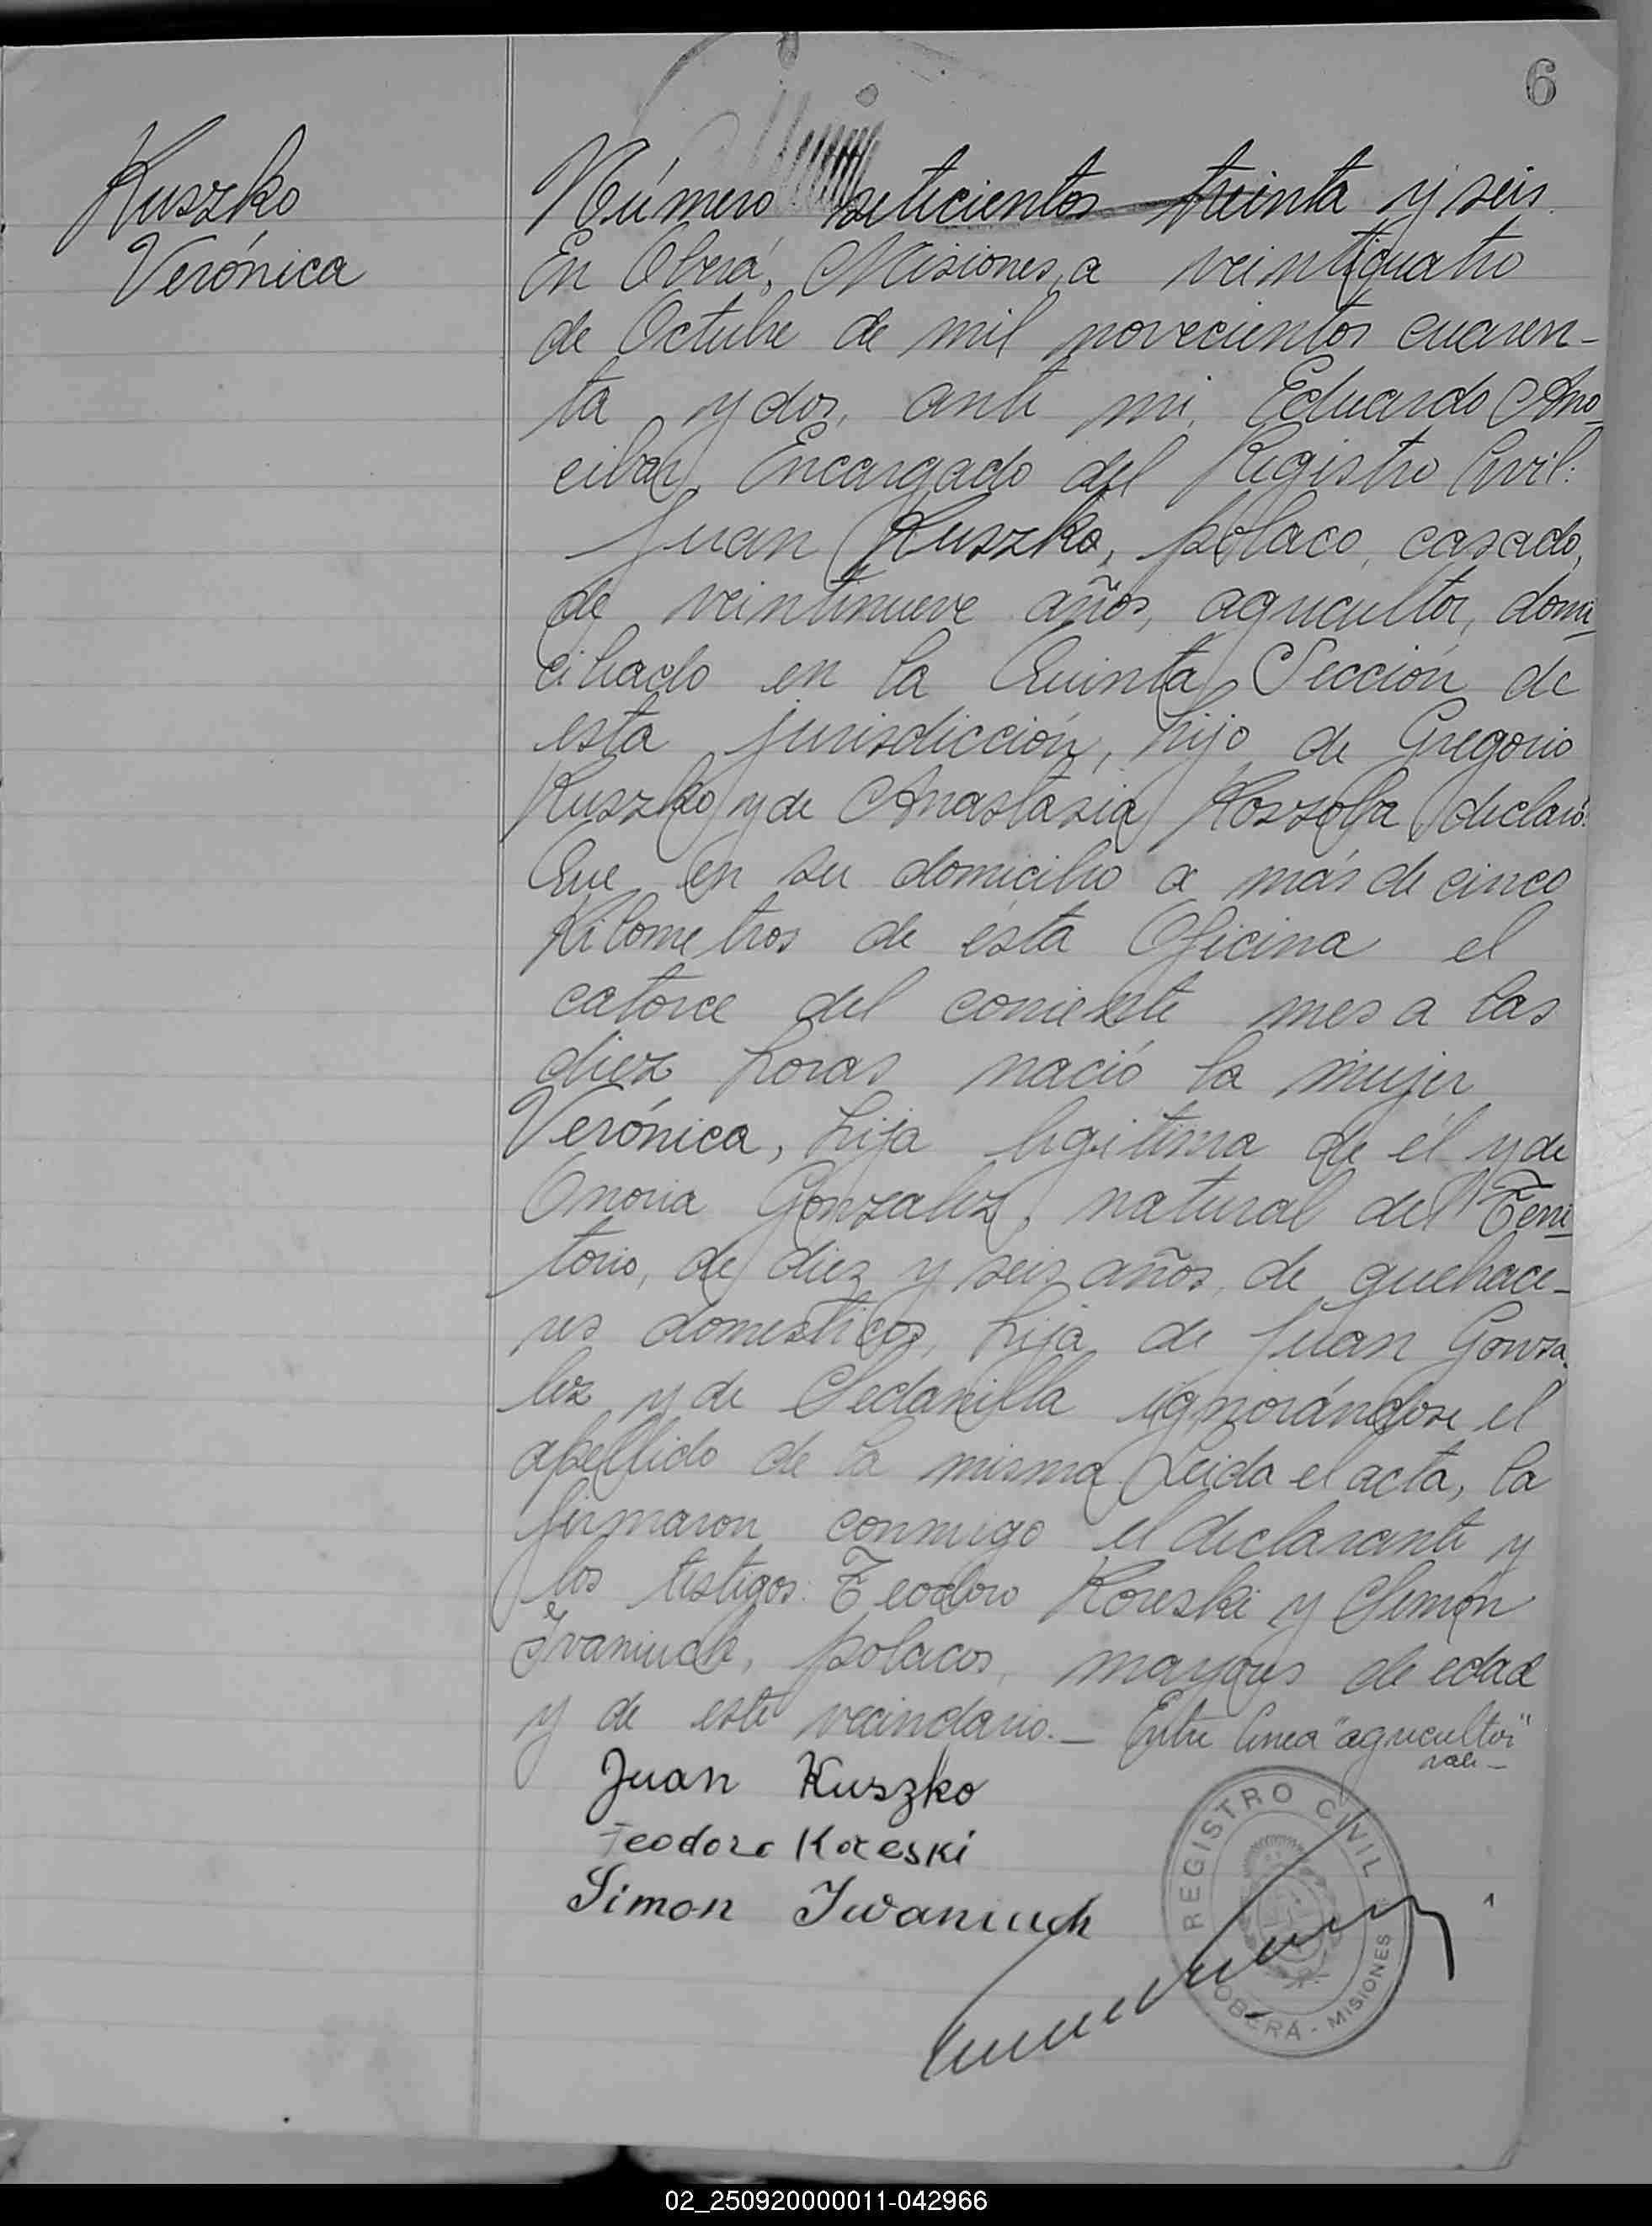 6
Kuszko
Verónica
Número seticientos treinta y seis
En Oberá, Misiones, a veintiquatro
de Octubre de mil novecientos cuaren-
ta y dos, ante mi, Eduardo Ano-
cibar, Encargado del Registro Civil:
Juan Kuszko, polaco, casado,
de veintinueve años, agricultor, domi-
ciliado en la Quinta Sección de
esta jurisdicción, hijo de Gregorio
Kuszko y de Anastasia declaró:
Que en su domicilio a más de cinco
Kilometros de ésta Oficina el
catorce del corriente mes a las
diez horas nació la mujer
Verónica, hija legitima de él y de
Onoria Gonzalez, natural del Terri-
torio, de diez y seis años, de quehace-
res domesticos, hija de Juan Gonza-
lez y de ignorándose el
apellido de la misma. Leida el acta, la
firmaron conmigo el declarante y
los testigos: Teodoro Koreski y Simón
Ivaniuch, polacos, mayores de edad
y de este vecindario.- Entre linea "agricultor"
vale-
Juan Kuszko
Teodoro Koreski
Simon Iwaniuch
REGISTRO CIVIL
OBERÁ - MISIONES
02_250920000011-042966